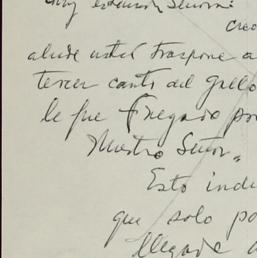 Muy estimada Señora:
Creo
alude usted traspone a
tercer canto del gallo
le fue fregado por
Nuestro Señor.
Esto indi
que solo po
llegada a